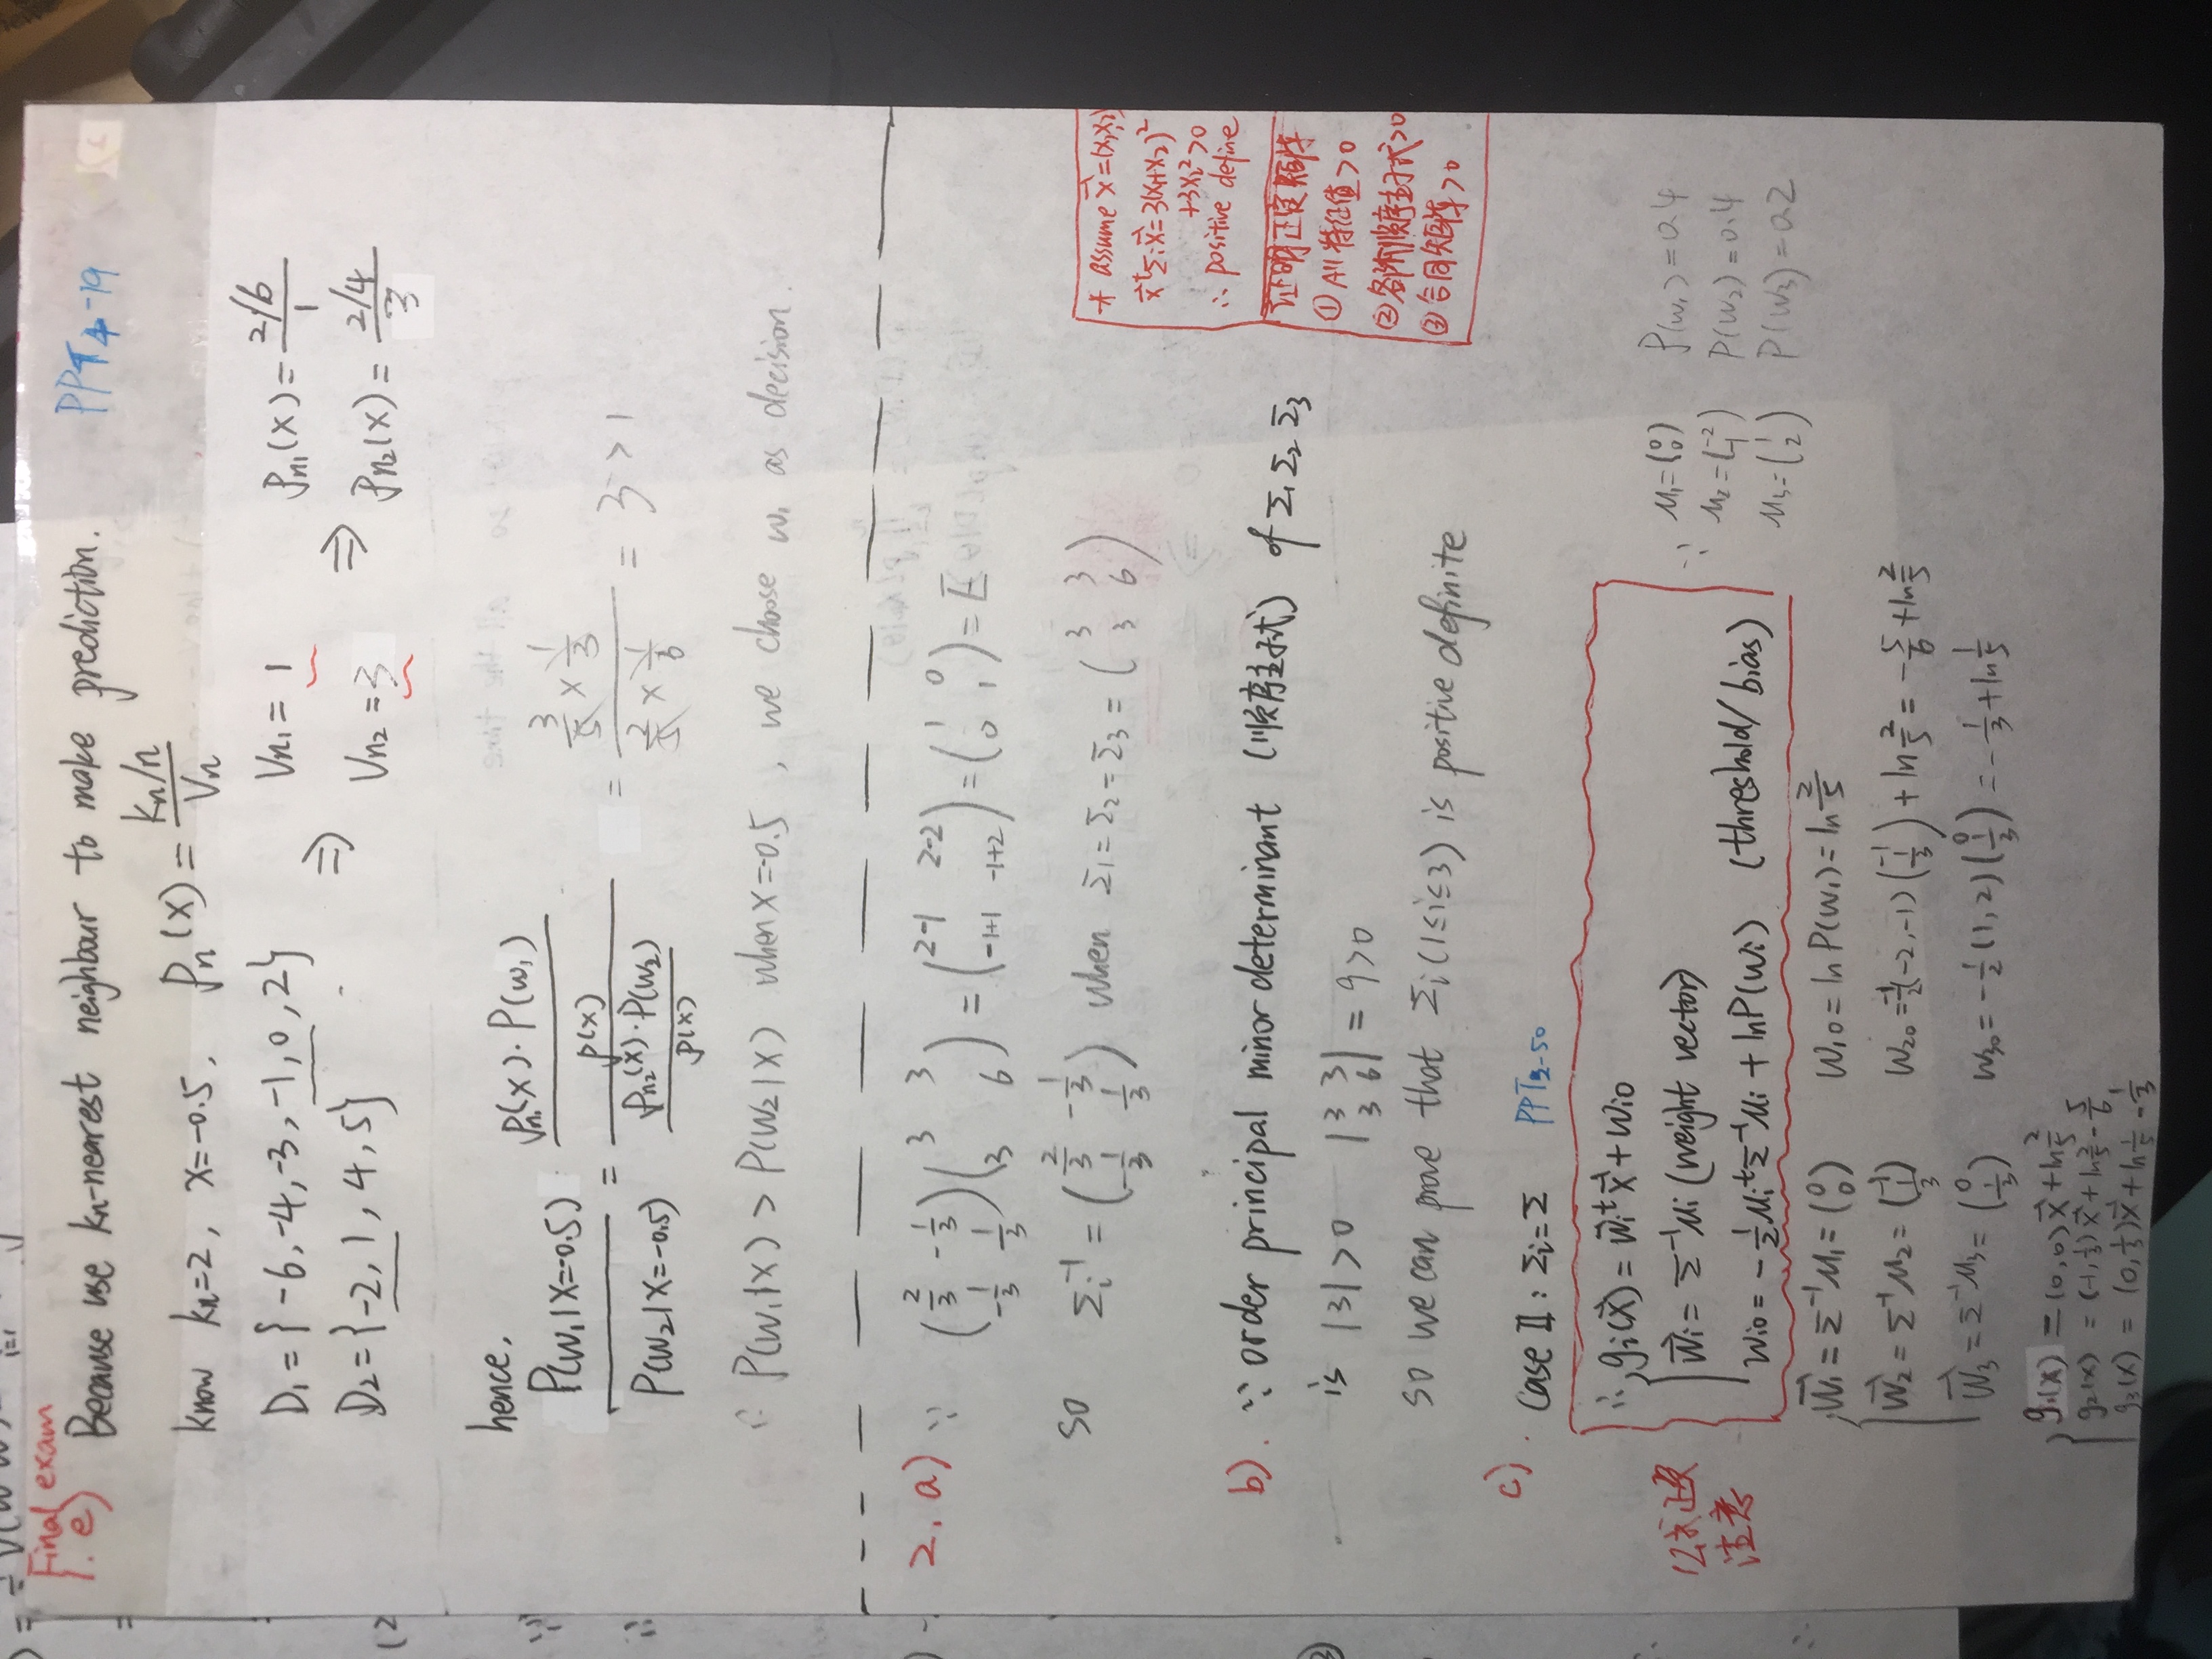 Final exam
1. e) Because use kn-nearest neighbour to make prediction. PPT4-19
know kn=2, x=-0.5, Pn(x) = (kn/n)/Vn
D1 = {-6, -4, -3, -1, 0, 2} ⇒ Vn1 = 1 ⇒ Pn1(x) = (2/6)/1
D2 = {-2, 1, 4, 5} Vn2 = 3 Pn2(x) = (2/4)/3
hence,
P(w1|x=-0.5) / P(w2|x=-0.5) = (Pn1(x)·P(w1) / p(x)) / (Pn2(x)·P(w2) / p(x)) = (3/5 × 1/3) / (2/5 × 1/6) = 3 > 1
∴ P(w1|x) > P(w2|x) when x=-0.5, we choose w1 as decision.
2. a) ∵ (2/3 -1/3; -1/3 1/3)(3 3; 3 6) = (2-1 2-2; -1+1 -1+2) = (1 0; 0 1) = E
so Σi⁻¹ = (2/3 -1/3; -1/3 1/3) when Σ1=Σ2=Σ3= (3 3; 3 6)
* assume x⃗=(x1,x2)
x⃗ᵗΣix⃗=3(x1+x2)²
+3x2²>0
∴ positive define
证明正定矩阵
① All 特征值>0
② 各阶顺序主子式>0
③ 合同矩阵>0
b). ∵ order principal minor determinant (顺序主子式) of Σ1 Σ2 Σ3
is |3|>0 |3 3; 3 6| = 9>0
so we can prove that Σi (1≤i≤3) is positive definite
c). Case II: Σi=Σ PPT2-50
∴ gi(x⃗) = w⃗iᵗx⃗ + wi0
w⃗i = Σ⁻¹μi (weight vector)
wi0 = -1/2 μiᵗΣ⁻¹μi + lnP(wi) (threshold/bias)
注意
∵ μ1=(0; 0) P(w1)=0.4
μ2=(-2; -1) P(w2)=0.4
μ3=(1; 2) P(w3)=0.2
w⃗1 = Σ⁻¹μ1 = (0; 0) w10 = lnP(w1) = ln 2/5
w⃗2 = Σ⁻¹μ2 = (-1; 1/3) w20 = -1/2(-2,-1)(-1; 1/3) + ln 2/5 = -5/6 + ln 2/5
w⃗3 = Σ⁻¹μ3 = (0; 1/3) w30 = -1/2 (1,2)(0; 1/3) = -1/3 + ln 1/5
g1(x) = (0,0)x⃗ + ln 2/5
g2(x) = (-1, 1/3)x⃗ + ln 2/5 - 5/6
g3(x) = (0, 1/3)x⃗ + ln 1/5 - 1/3